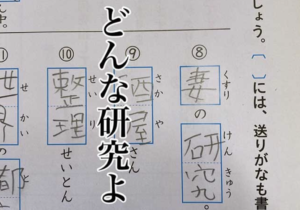 しょう。〔 〕には、送りがなも書
⑧
妻の研究。
くすり
けんきゅう
⑨
酒屋さん
さかや
⑩
整理せいとん
せいり
①
世界の都
せかい
と
どんな研究よ